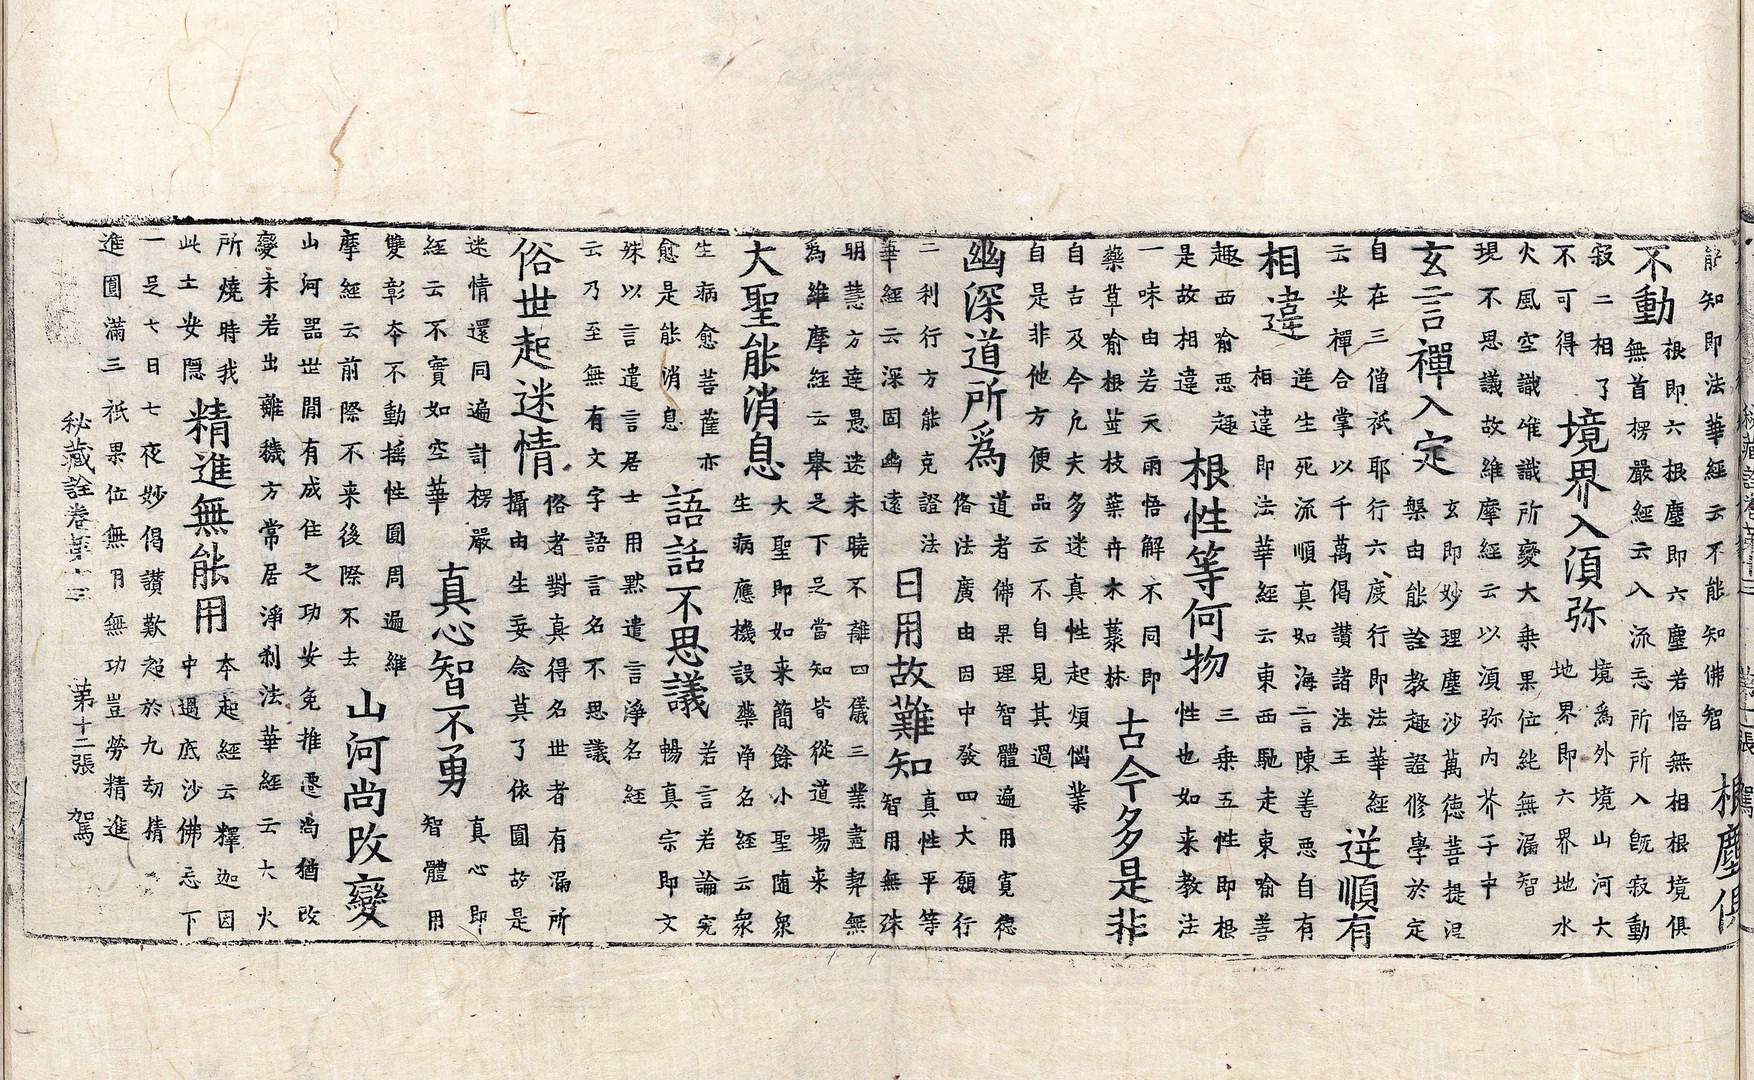 能知即法華經云不能知佛智
根塵俱
不動
根即六根塵即六塵若悟無相根境俱
無首楞嚴經云入流忘所所入既寂動
寂二相了
不可得
境界入須弥
境為外境山河大
地界即六界地水
火風空識唯識所變大乗果位純無漏智
現不思議故維摩經云以須弥内芥子中
玄言禪入定
玄即妙理塵沙萬徳菩提涅
槃由能詮教趣證修學於定
自在三僧祇耶行六度行即法華經
云安禪合掌以千萬偈讚諸法王
逆順有
相違
逆生死流順真如海言陳善悪自有
相違即法華經云東西馳走東喻善
趣西喻悪趣
是故相違
根性等何物
三乗五性即根
性也如来教法
一味由若天雨悟解不同即
藥草喻根莖枝葉卉木藂林
古今多是非
自古及今凢夫多迷真性起煩惱業
自是非他方便品云不自見其過
幽深道所為
道者佛果理智體遍用寛徳
俻法廣由因中發四大願行
二利行方能克證法
華經云深固幽遠
日用故難知
真性平等
智用無殊
明慧方達愚迷未曉不離四儀三業盡契無
為維摩經云舉足下足當知皆從道場来
大聖能消息
大聖即如来簡餘小聖随衆
生病應機設藥浄名經云衆
生病愈菩薩亦
愈是能消息
語話不思議
若言若論究
暢真宗即文
殊以言遣言居士用黙遣言浄名經
云乃至無有文字語言名不思議
俗世起迷情
俗者對真得名世者有漏所
攝由生妄念莫了依圓故是
迷情還同遍計楞嚴
經云不實如空華
真心智不勇
真心即
智體用
雙彰夲不動摇性圓周遍維
摩經云前際不来後際不去
山河尚改變
山河噐世間有成住之功安免推遷尚猶改
變未若出離穢方常居浄刹法華經云大火
所燒時我
此土安隱
精進無能用
本起經云釋迦因
中過底沙佛忘下
一足七日七夜妙偈讃歎超於九劫精
進圓滿三祇果位無用無功豈勞精進
秘藏詮卷第十三 第十二張 駕